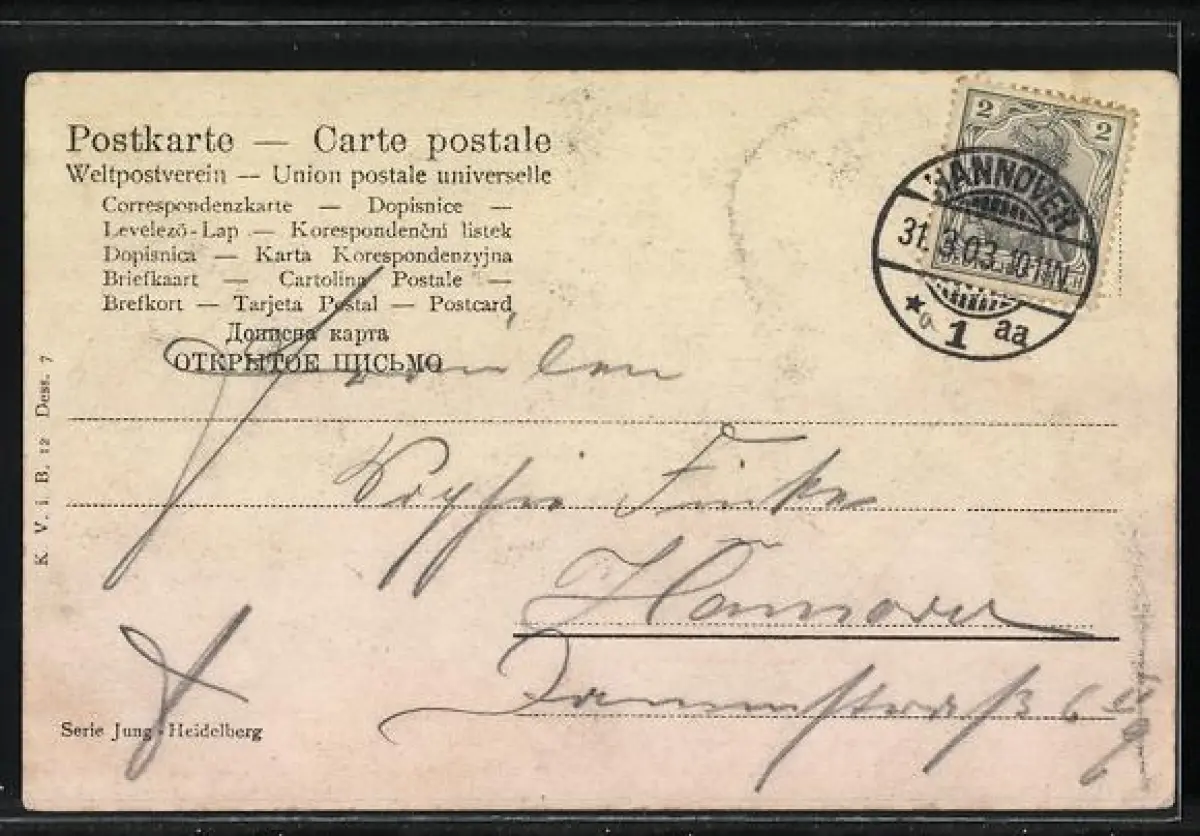 Postkarte — Carte postale
Weltpostverein — Union postale universelle
Correspondenzkarte — Dopisnice —
Levelező-Lap — Korespondenční listek
Dopisnica — Karta Korespondenzyjna
Briefkaart — Cartolina Postale —
Brefkort — Tarjeta Postal — Postcard
Дописна карта
ОТКРЫТОЕ ПИСЬМО
2 2
HANNOVER
31.3.03.10-11N
* 1 aa
Fräulein
Finke
Hannover
Dammstraße 6
K. V. i. B. 12 Dess. 7
Serie Jung-Heidelberg